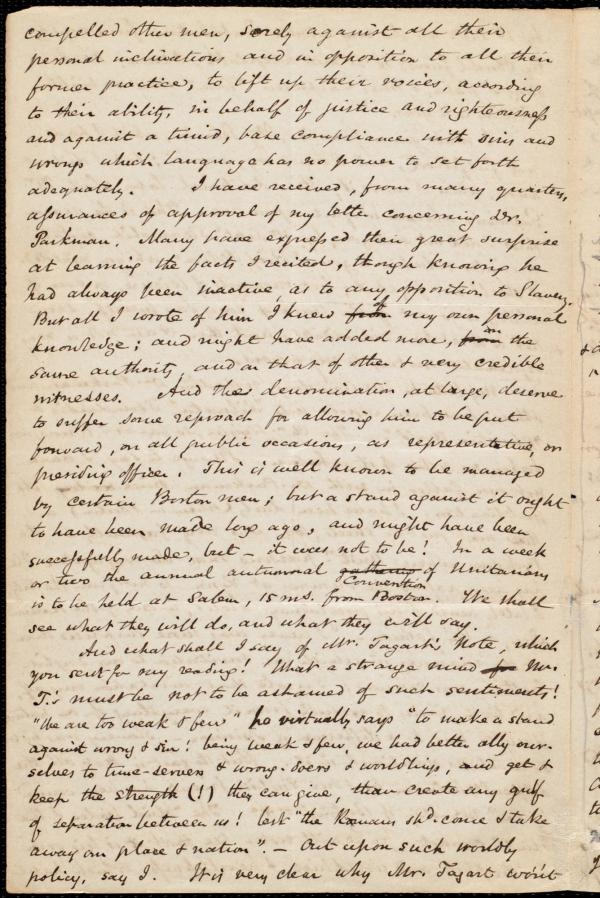 compelled other men, sorely against all their
personal inclinations and in opposition to all their
former practice, to lift up their voices, according
to their ability, in behalf of justice and righteousness
and against a timid, base compliance with sins and
wrongs which language has no power to set forth
adequately. I have received, from many quarters,
assurances of approval of my letter concerning Dr.
Parkman. Many have expressed their great surprise
at learning the facts I recited, though knowing he
had always been inactive, as to any opposition to Slavery.
But all I wrote of him I knew from of my own personal
knowledge; and might have added more, from on the
same authority, and on that of other & very credible
witnesses. And the denomination, at large, deserve
to suffer some reproach for allowing him to be put
forward, on all public occasions, as representative, or
presiding officer. This is well known to be managed
by certain Boston men; but a stand against it ought
to have been made long ago, and might have been
successfully made, but – it was not to be! In a week
or two the annual autumnal gathering of Unitarians
Convention
is to be held at Salem, 15 ms. from Boston. We shall
see what they will do, and what they will say.
And what shall I say of Mr. Tagart's Note, which
you sent for my reading! What a strange mind for Mr.
T.'s must be not to be ashamed of such sentiments!
"We are too weak & few" he virtually says "to make a stand
against wrong & sin! being weak & few, we had better ally our-
selves to time-servers & wrong-doers & worldlings, and get &
keep the strength (!) they can give, than create any gulf
of separation between us! lest "the Romans shd. come & take
away our place & nation". – Out upon such worldly
policy, say I. It is very clear why Mr. Tagart won't